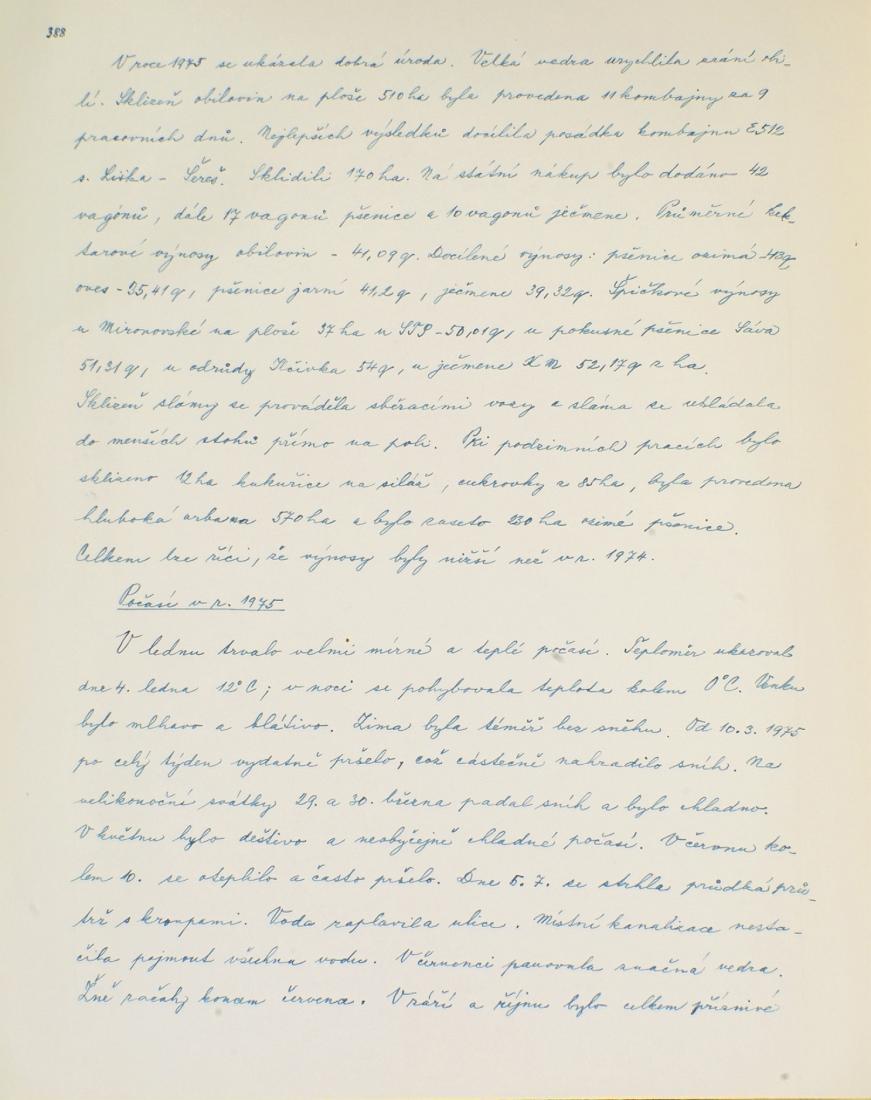 388
V roce 1975 se ukázala dobrá úroda. Velká vedra urychlila zrání obi-
lí. Sklizeň obilovin na ploše 510 ha byla provedena 11 kombajny za 9
pracovních dnů. Nejlepších výsledků docílila posádka kombajnu E512
s. Liška - Šereš. Sklidili 170 ha. Na státní nákup bylo dodáno 42
vagónů, dále 17 vagonů pšenice a 10 vagonů ječmene. Průměrné hek-
tarové výnosy obilovin - 41,09 q. Docílené výnosy: pšenice ozimá - 43q
oves - 35,41 q, pšenice jarní 41,2 q, ječmene 39,32 q. Špičkové výnosy
u Mironovské na ploše 37 ha u - 50,01 q, u pokusné pšenice Sáva
51,31 q, u odrůdy 54 q, u ječmene 52,17 q z ha.
Sklizeň slámy se prováděla sběracími vozy a sláma se ukládala
do menších stohů přímo na poli. Při podzimních pracích bylo
sklizeno 12 ha kukuřice na siláž, cukrovky z 85 ha, byla provedena
hluboká orba na 570 ha a bylo zaseto 230 ha ozimé pšenice.
Celkem lze říci, že výnosy byly nižší než v r. 1974.
Počasí v r. 1975
V lednu trvalo velmi mírné a teplé počasí. Teploměr ukazoval
dne 4. ledna 12°C; v noci se pohybovala teplota kolem 0°C. Venku
bylo mlhavo a blátivo. Zima byla téměř bez sněhu. Od 10.3. 1975
po celý týden vydatně pršelo, což částečně nahradilo sníh. Na
velikonoční svátky 29. a 30. března padal sníh a bylo chladno.
V květnu bylo deštivo a neobyčejně chladné počasí. V červnu ko-
lem 10. se oteplilo a často pršelo. Dne 5. 7. se strhla prudká prů-
trž s kroupami. Voda zaplavila ulice. Místní kanalizace nesta-
čila pojmout všechnu vodu. V červenci panovala značná vedra.
Žně začaly koncem června. V září a říjnu bylo celkem příznivé